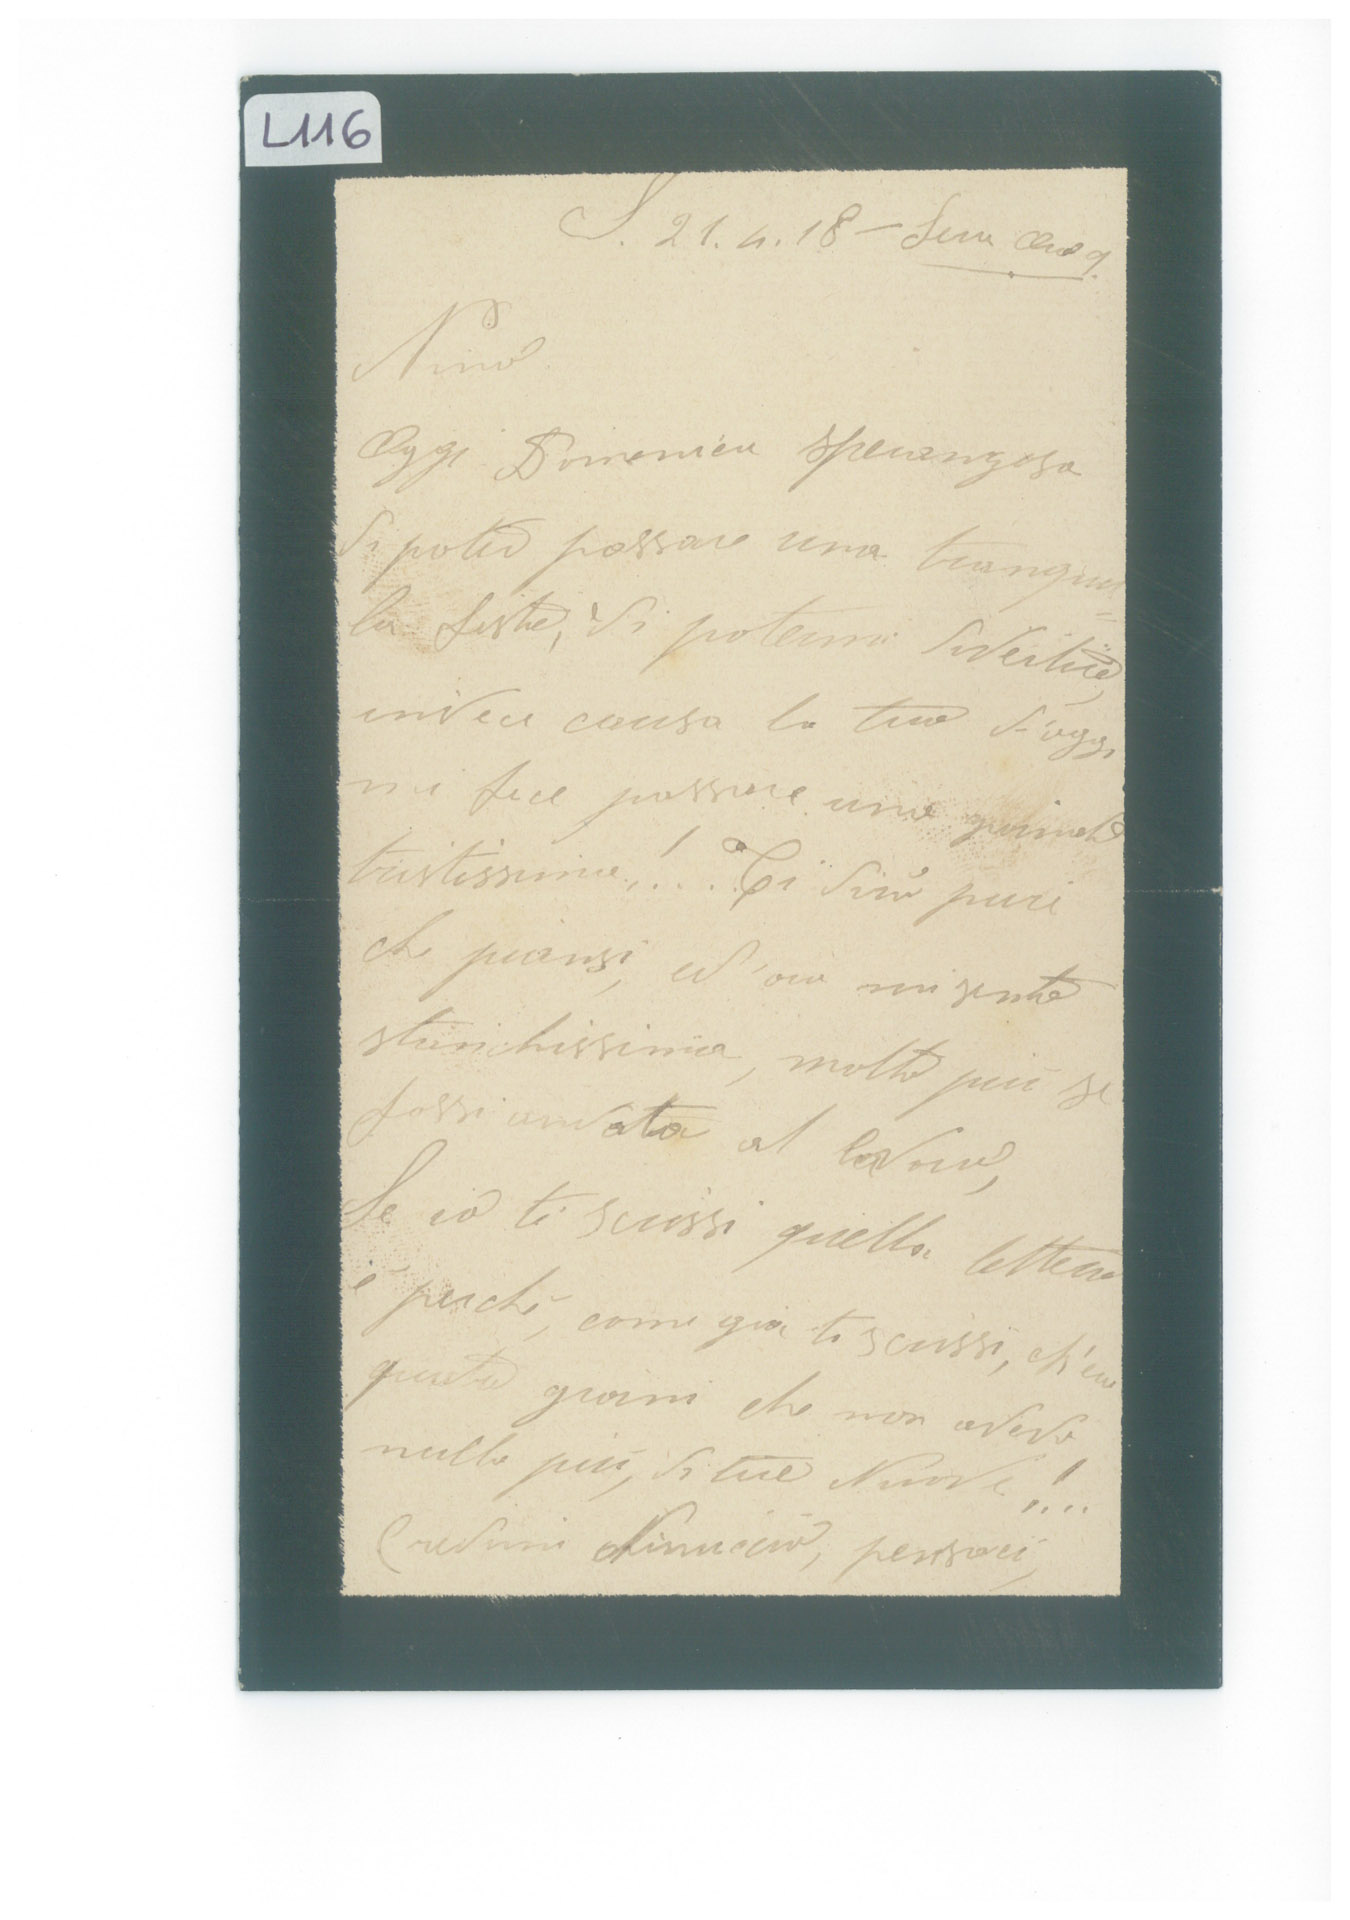 L116
S. 21.4.18 – Sera Ore 9.
Nino
Oggi Domenica speranzosa
di poter passare una tranquil=
la festa, di potermi divertire,
invece causa la tua d'oggi
mi fece passare una giornata
tristissima,!... Ti dirò pure
che piansi, ed ora mi sento
stanchissima, molto più se
fossi andata al lavoro,
Se io ti scrissi quella lettera
è perché, come già ti scrissi, ch'era
quatro giorni che non avevo
nulla più, di tue Nuove,!...
Credimi Ninuccio, pensaci,